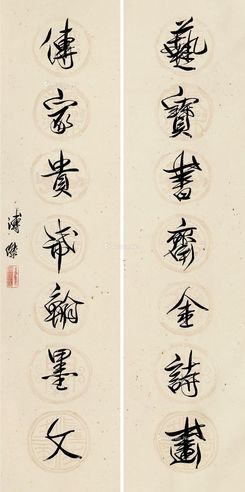 藝寶書齋金詩畫
傳家貴歲翰墨文
溥傑